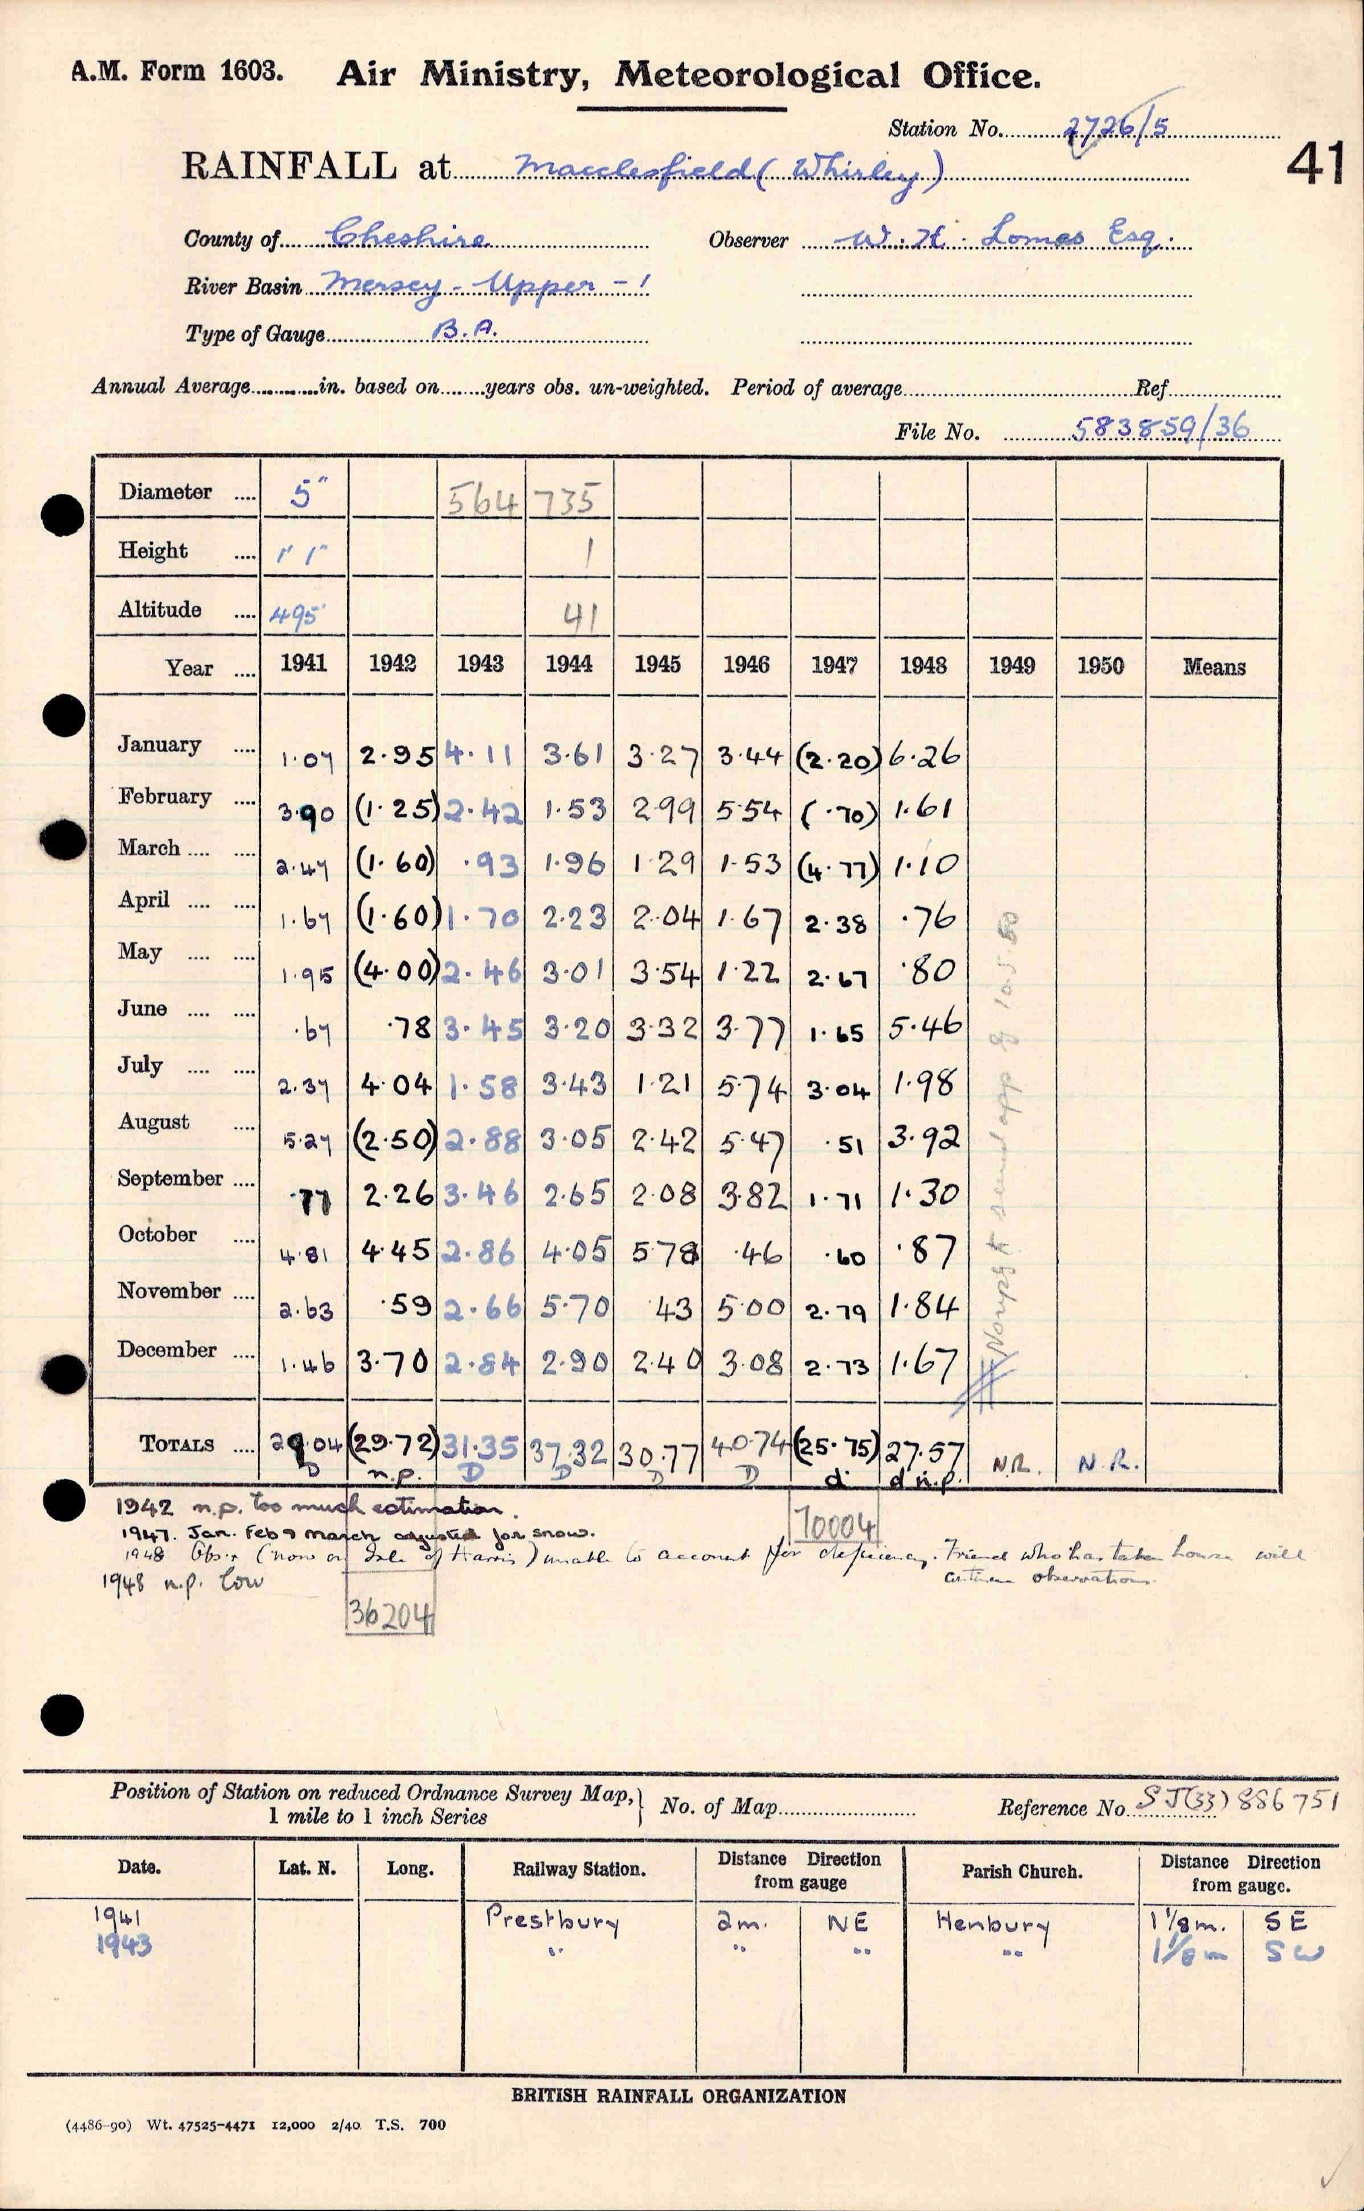 A.M. Form 1603. Air Ministry, Meteorological Office.
Station No. 2726/5
41
RAINFALL at Macclesfield (Whirley)
County of Cheshire Observer W. H. Lomas Esq.
River Basin Mersey - Upper - 1
Type of Gauge B.A.
Annual Average in. based on years obs. un-weighted. Period of average Ref
File No. 583859/36
Diameter 5" 564 735
Height 1' 1" 1
Altitude 495' 41
Year 1941 1942 1943 1944 1945 1946 1947 1948 1949 1950 Means
January 1.07 2.95 4.11 3.61 3.27 3.44 (2.20) 6.26
February 3.90 (1.25) 2.42 1.53 2.99 5.54 (.70) 1.61
March 2.47 (1.60) .93 1.96 1.29 1.53 (4.77) 1.10
April 1.67 (1.60) 1.70 2.23 2.04 1.67 2.38 .76
May 1.95 (4.00) 2.46 3.01 3.54 1.22 2.67 .80
June .67 .78 3.45 3.20 3.32 3.77 1.65 5.46
July 2.37 4.04 1.58 3.43 1.21 5.74 3.04 1.98
August 5.27 (2.50) 2.88 3.05 2.42 5.47 .51 3.92
September .77 2.26 3.46 2.65 2.08 3.82 1.71 1.30
October 4.81 4.45 2.86 4.05 5.78 .46 .60 .87
November 2.63 .59 2.66 5.70 43 5.00 2.79 1.84
December 1.46 3.70 2.84 2.90 2.40 3.08 2.73 1.67
TOTALS 29.04 (29.72) 31.35 37.32 30.77 40.74 (25.75) 27.57 N.R. N.R.
D n.p. D D D D d d n.p.
1942 n.p. too much estimation.
1947. Jan. Feb & March adjusted for snow.
70004
1948 Obs.r (now on Isle of Harris) unable to account for deficiency. Friend who has taken house will
continue observations.
1948 n.p. low
36204
Position of Station on reduced Ordnance Survey Map,
1 mile to 1 inch Series
No. of Map Reference No. SJ(33) 886751
Date. Lat. N. Long. Railway Station. Distance from gauge Direction Parish Church. Distance from gauge. Direction
1941 Prestbury 2m. NE Henbury 1 1/8 m. SE
1943 " " " " 1 1/8 m SW
BRITISH RAINFALL ORGANIZATION
(4486-90) Wt. 47525-4471 12,000 2/40 T.S. 700